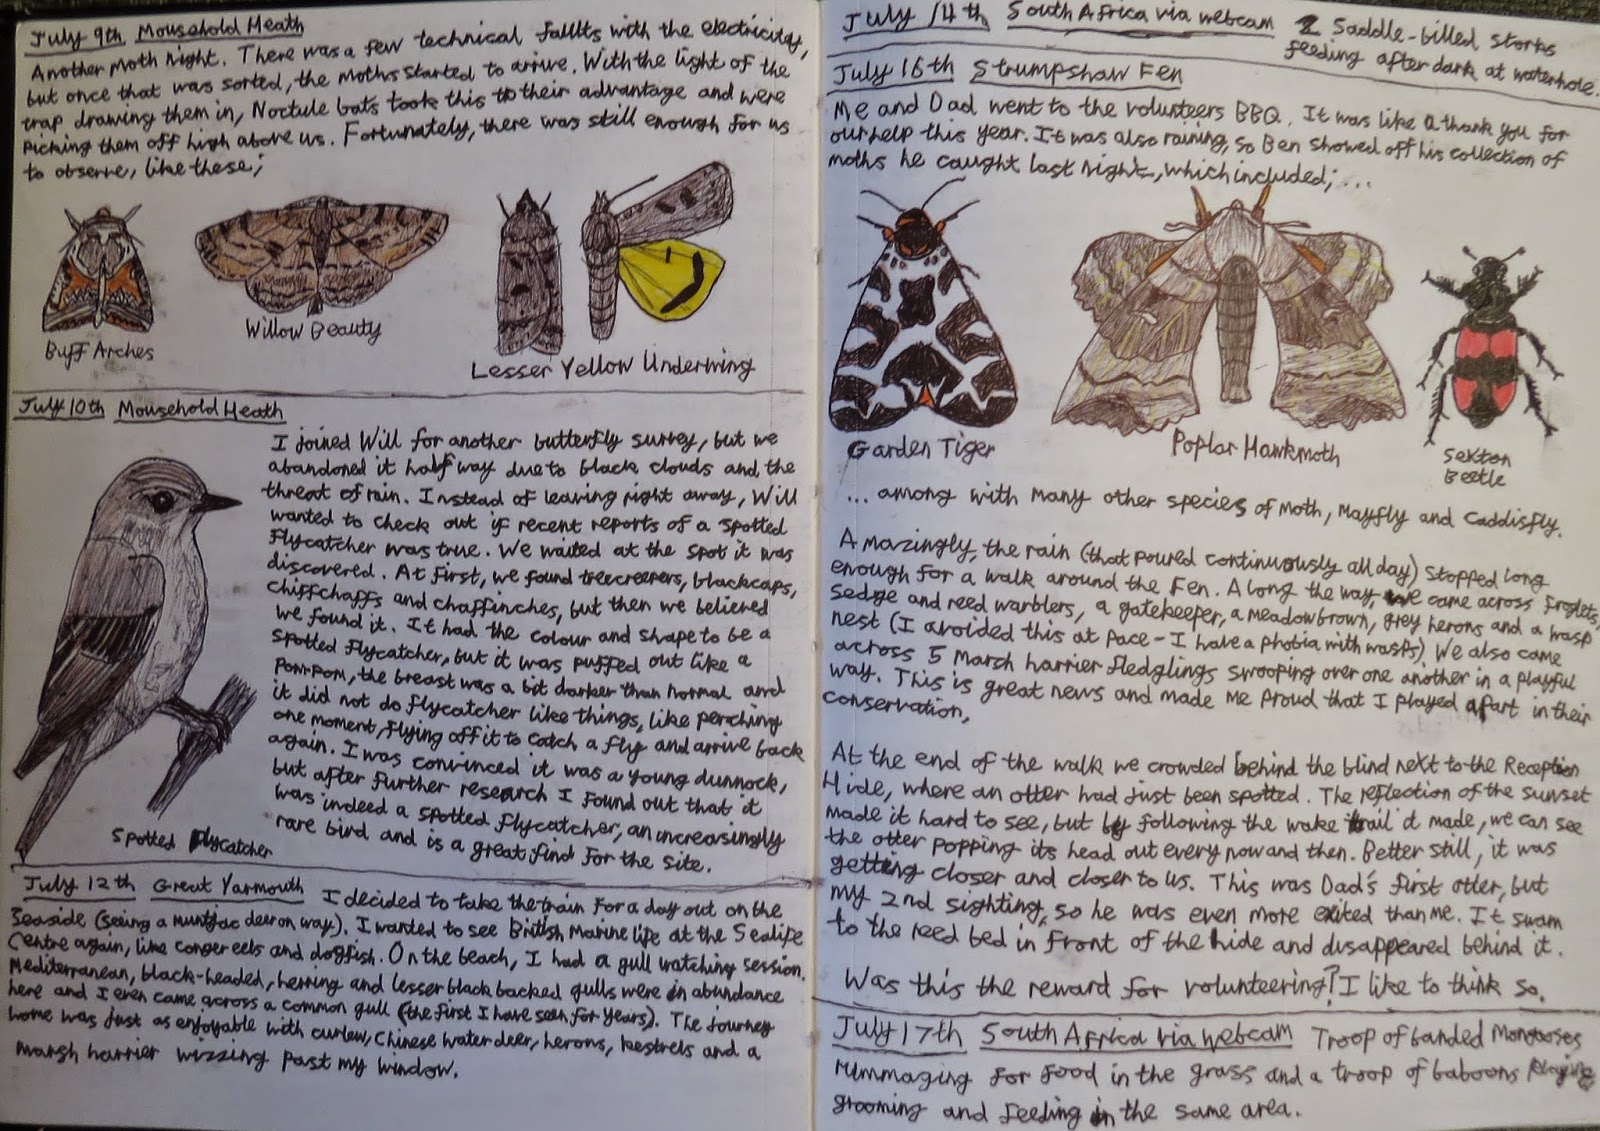 July 9th Mousehold Heath
Another moth night. There was a few technical faillts with the electricity,
but once that was sorted, the moths started to arrive. With the light of the
trap drawing them in, Noctule bats took this to their advantage and were
picking them off high above us. Fortunately, there was still enough for us
to observe, like these;
Buff Arches
Willow Beauty
Lesser Yellow Underwing
July 10th Mousehold Heath
I joined Will for another butterfly survey, but we
abandoned it half way due to black clouds and the
threat of rain. Instead of leaving right away, Will
wanted to check out if recent reports of a spotted
flycatcher was true. We waited at the spot it was
discovered. At first, we found treecreepers, blackcaps,
chiffchaffs and chaffinches, but then we believed
we found it. It had the colour and shape to be a
spotted flycatcher, but it was puffed out like a
pom-pom, the breast was a bit darker than normal and
it did not do flycatcher like things, like perching
one moment, flying off it to catch a fly and arrive back
again. I was convinced it was a young dunnock,
but after further research I found out that it
was indeed a spotted flycatcher, an increasingly
rare bird and is a great find for the site.
Spotted Flycatcher
July 12th Great Yarmouth I decided to take the train for a day out on the
seaside (seeing a muntjac deer on way). I wanted to see British Marine life at the Sealife
Centre again, like conger eels and dogfish. On the beach, I had a gull watching session.
Mediterranean, black-headed, herring and lesser black backed gulls were in abundance
here and I even came across a common gull (the first I have seen for years). The journey
home was just as enjoyable with curlew, Chinese water deer, herons, kestrels and a
marsh harrier wizzing past my window.
July 14th South Africa via webcam 2 Saddle-billed storks
feeding after dark at waterhole.
July 16th Strumpshaw Fen
Me and Dad went to the volunteers BBQ. It was like a thank you for
our help this year. It was also raining, so Ben showed off his collection of
moths he caught last night, which included; ...
Garden Tiger
Poplar Hawkmoth
Sexton
Beetle
... among with many other species of moth, Mayfly and Caddisfly.
Amazingly, the rain (that poured continuously all day) stopped long
enough for a walk around the Fen. Along the way, we came across froglets,
sedge and reed warblers, a gatekeeper, a meadow brown, grey herons and a wasp
nest (I avoided this at pace - I have a phobia with wasps). We also came
across 5 Marsh harrier fledglings swooping over one another in a playful
way. This is great news and made me proud that I played apart in their
conservation,
At the end of the walk we crowded behind the blind next to the Reception
Hide, where an otter had just been spotted. The reflection of the sunset
made it hard to see, but by following the wake trail it made, we can see
the otter popping its head out every now and then. Better still, it was
getting closer and closer to us. This was Dad's first otter, but
my 2nd sighting, so he was even more exited than me. It swam
to the reed bed in front of the hide and disappeared behind it.
Was this the reward for volunteering? I like to think so.
July 17th South Africa via webcam Troop of banded Mongooses
rummaging for food in the grass and a troop of baboons playing
grooming and feeding in the same area.